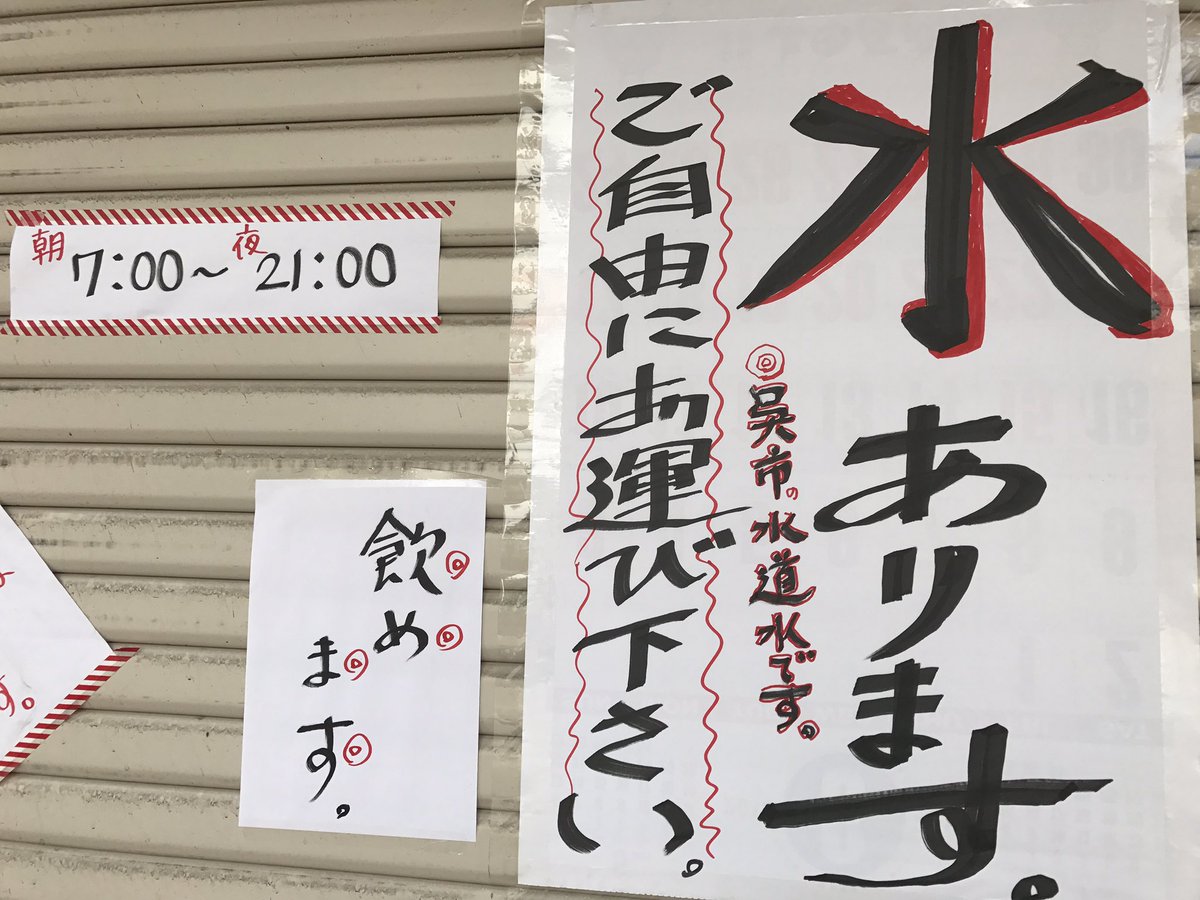 水あります。
◎呉市の水道水です。
ご自由にお運び下さい。
朝7:00～夜21:00
飲め
ます。
す。